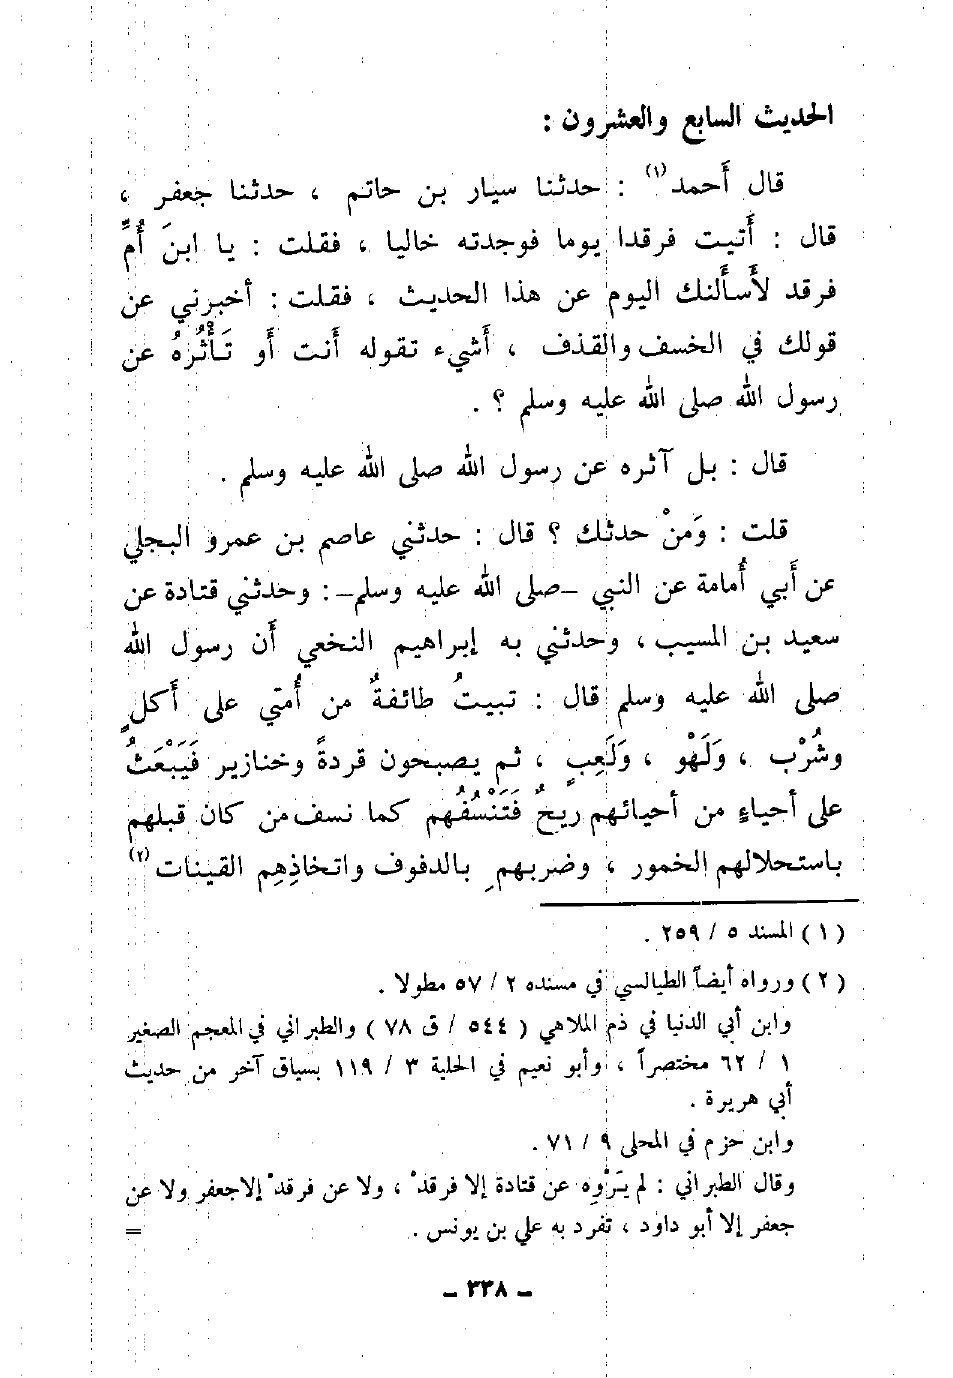 الحديث السابع والعشرون :
قال أَحمد(١) : حدثنا سيار بن حاتم ، حدثنا جعفر ،
قال : أَتيت فرقدا يوما فوجدته خاليا ، فقلت : يا ابنَ أُمِّ
فرقد لأَسأَلنك اليوم عن هذا الحديث ، فقلت : أخبرني عن
قولك في الخسف والقذف ، أَشيء تقوله أَنت أَو تَأْثُرهُ عن
رسول الله صلى الله عليه وسلم ؟ .
قال : بل آثره عن رسول الله صلى الله عليه وسلم .
قلت : وَمَنْ حدثك ؟ قال : حدثني عاصم بن عمرو البجلي
عن أَبي أُمامة عن النبي -صلى الله عليه وسلم- : وحدثني قتادة عن
سعيد بن المسيب ، وحدثني به إبراهيم النخعي أَن رسول الله
صلى الله عليه وسلم قال : تبيتُ طائفةٌ من أُمتي على أَكلٍ
وشُرْب ، وَلَهْو ، وَلَعِبٍ ، ثم يصبحون قردةً وخنازير فَيَبْعَثُ
على أحياءٍ من أحيائهم ريحٌ فَتَنْسُفُهم كما نسف من كان قبلهم
باستحلالهم الخمور ، وضربهمِ بالدفوف واتخاذِهِم القينات(٢)
( ١ ) المسند ٥ / ٢٥٩ .
( ٢ ) ورواه أيضاً الطيالسي في مسنده ٢ / ٥٧ مطولا .
وابن أبي الدنيا في ذم الملاهي ( ٥٤٤ / ق ٧٨ ) والطبراني في المعجم الصغير
١ / ٦٢ مختصراً ، وأبو نعيم في الحلية ٣ / ١١٩ بسياق آخر من حديث
أبي هريرة .
وابن حزم في المحلى ٩ / ٧١ .
وقال الطبراني : لم يَرْوِه عن قتادة إلا فرقدْ ، ولا عن فرقدْ إلاجعفر ولا عن
جعفر إلا أبو داود ، تفرد به علي بن يونس .
=
- ٣٣٨ -